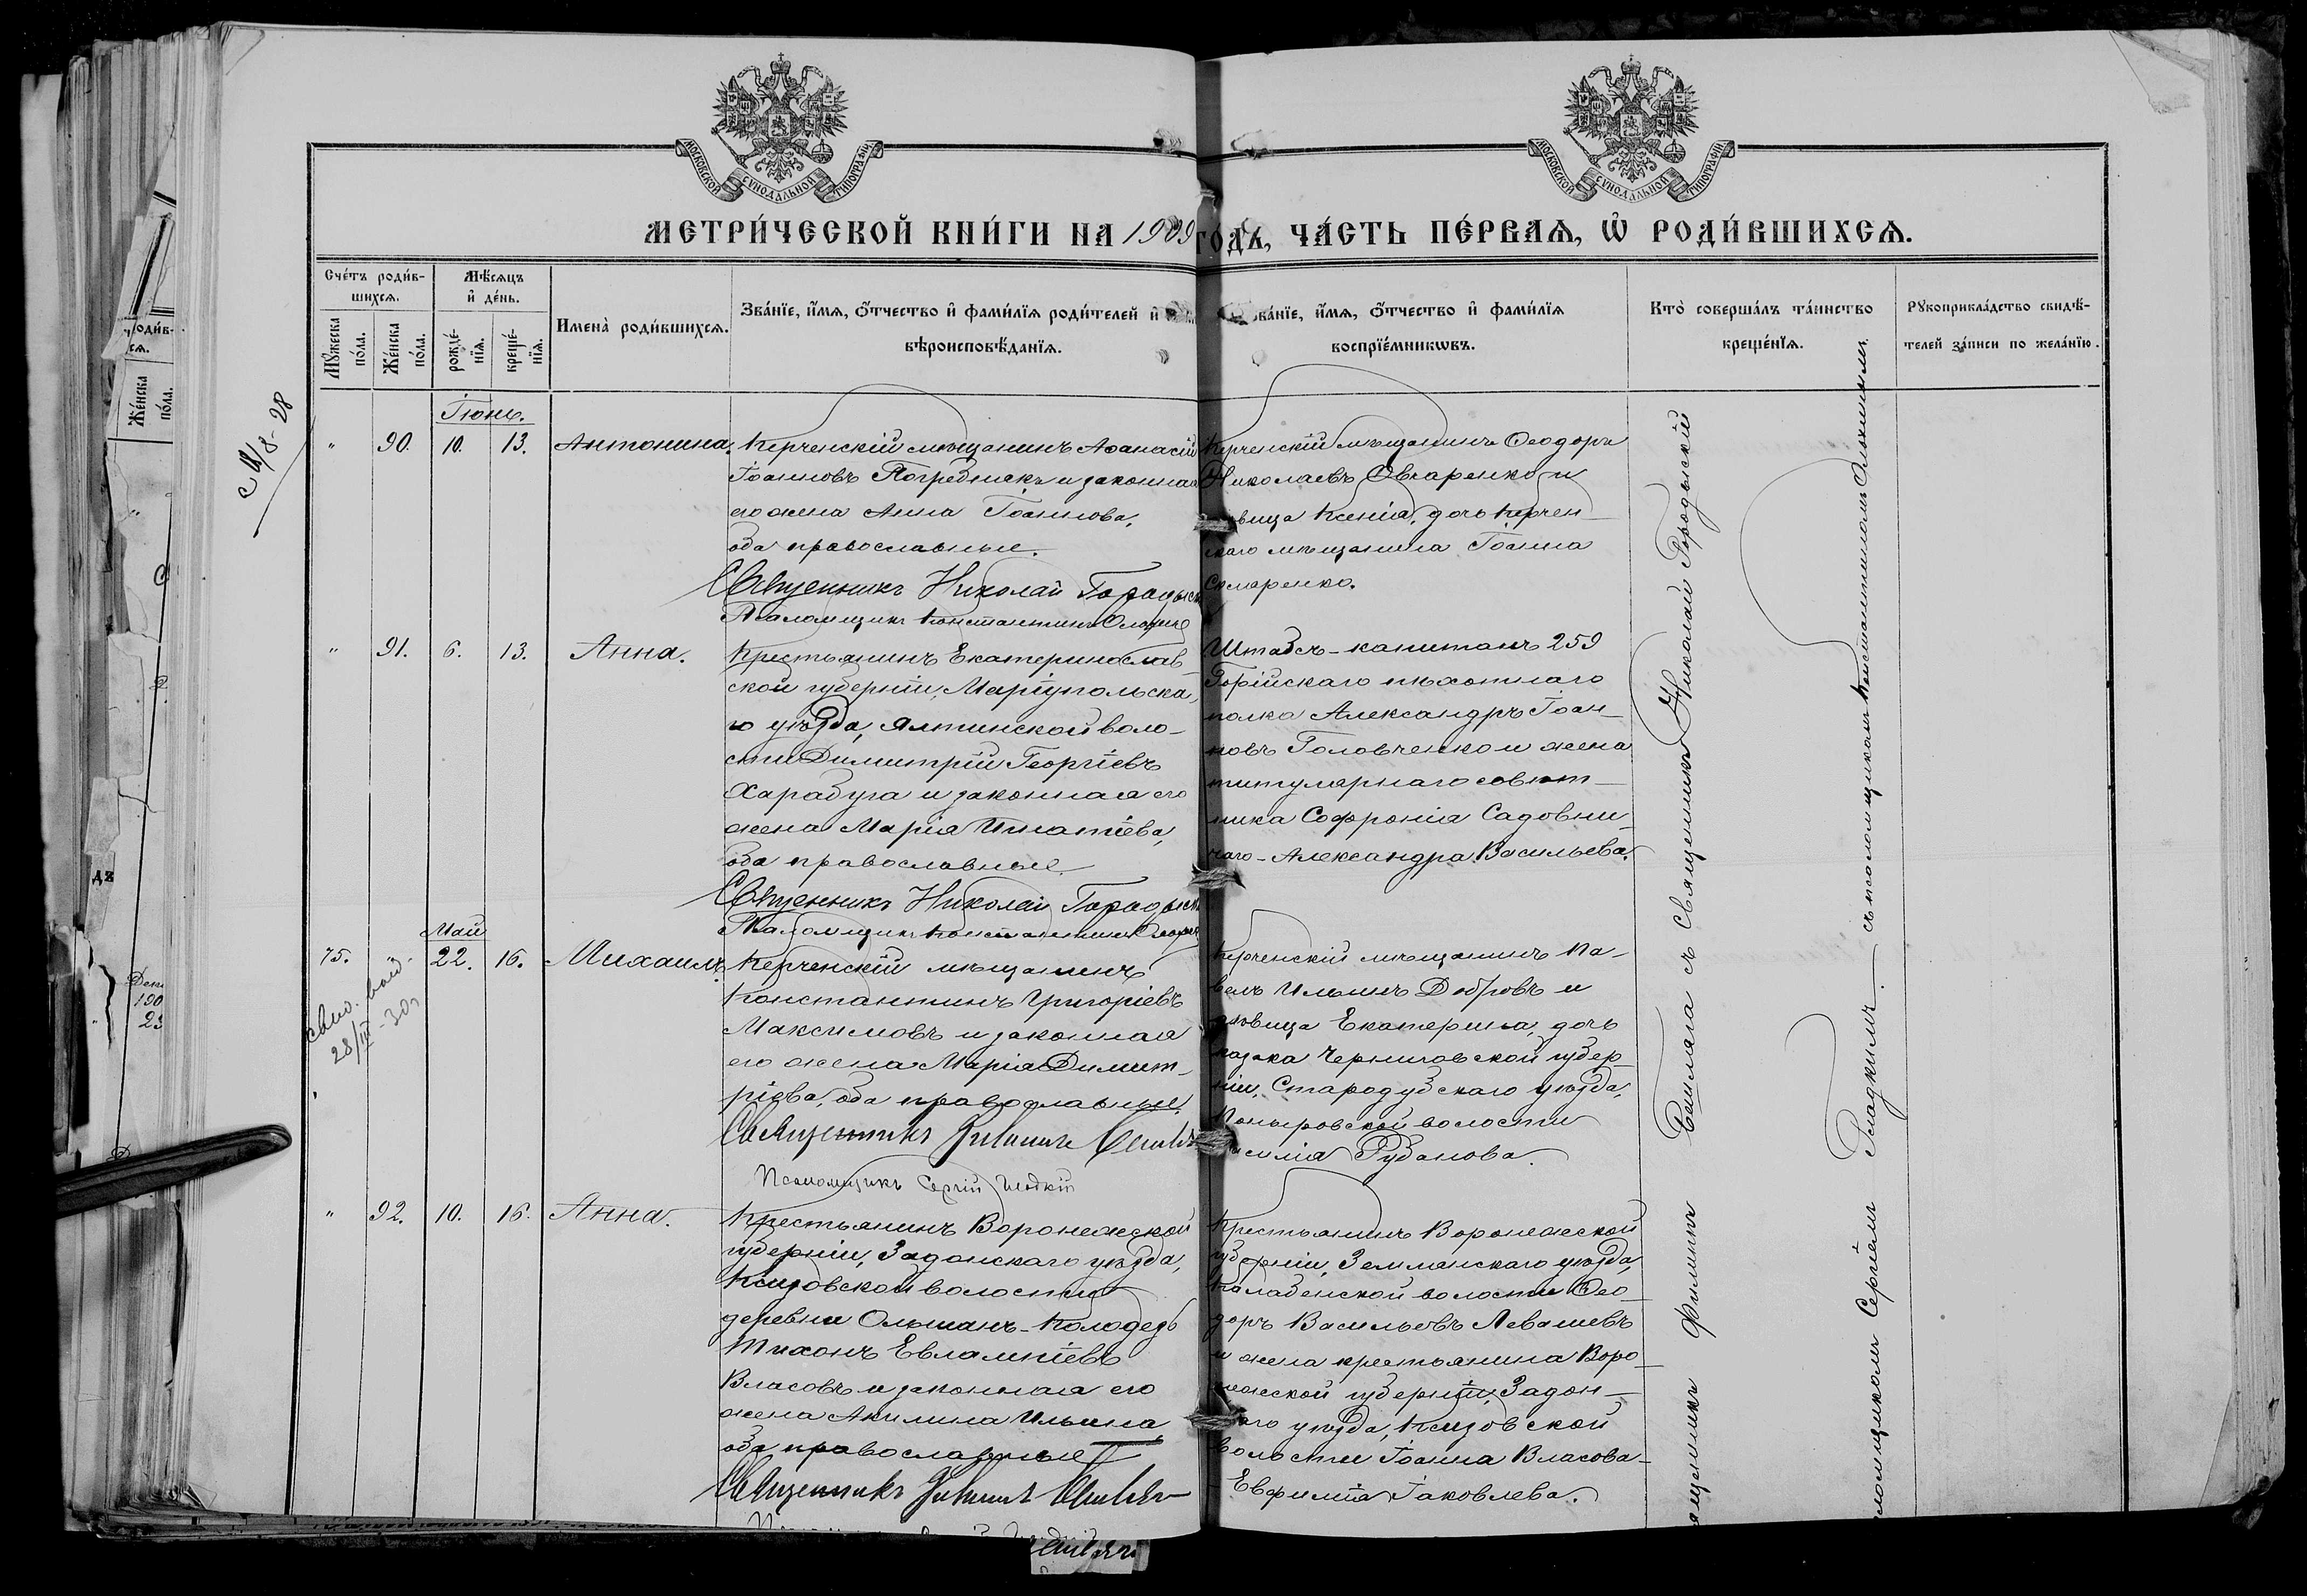 МОСКОВСКОЙ СѴНОДАЛЬНОЙ ТИПОГРАФІИ
МОСКОВСКОЙ СѴНОДАЛЬНОЙ ТИПОГРАФІИ
МЕТРИ́ЧЕСКОЙ КНИ́ГИ НА 1909 ГОДЪ, ЧА́СТЬ ПЕ́РВАЯ, Ѡ҆ РОДИ́ВШИХСЯ.
Сче́тъ роди́в-
шихся.
Мѣ́сяцъ
и҆ де́нь.
Мꙋ́жеска
по́ла.
Же́нска
по́ла.
рожде́-
нїя.
креще́-
нїя.
Имена̀ роди́вшихся.
Зва́нїе, и҆́мя, ѻ҆́тчество и҆ фами́лїя роди́телей и҆
вѣроисповѣ́данїя.
Зва́нїе, и҆́мя, ѻ҆́тчество и҆ фами́лїя
воспрїе́мникѡвъ.
Кто̀ соверша́лъ та́инство
креще́нїя.
Рꙋкоприкла́дство свидѣ́-
телей за́писи по жела́нїю.
Іюнь.
" 90. 10. 13. Антонина.
Керченскій мѣщанинъ Аѳанасій
Іоанновъ Погребнякъ и законная
его жена Анна Іоаннова,
оба православные.
Священникъ Николай Городыскій
Псаломщикъ Константинъ
Керченскій мѣщанинъ Ѳеодоръ
Николаевъ Овчаренко и
дѣвица Ксенія, дочь Керчен-
скаго мѣщанина Іоанна
Скляренко.
" 91. 6. 13. Анна.
Крестьянинъ Екатеринослав-
ской губерніи, Маріупольска-
го уѣзда, Ялтинской воло-
сти Димитрій Георгіевъ
Харабуга и законная его
жена Марія Игнатіева,
оба православные.
Священникъ Николай Городыскій
Псаломщикъ Константинъ
Штабсъ-капитанъ 259
Горійскаго пѣхотнаго
полка Александръ Іоан-
новъ Головченко и жена
титулярнаго совѣт-
ника Софронія Садовни-
чаго - Александра Васильева.
Май
75. 22. 16. Михаилъ.
28/III-30
Керченскій мѣщанинъ
Константинъ Григоріевъ
Максимовъ и законная
его жена Марія Димит-
ріева, оба православные.
Священникъ Филиппъ
Псаломщикъ Сергій Гладкій
Керченскій мѣщанинъ Па-
велъ Ильинъ Добровъ и
дѣвица Екатерина, дочь
казака Черниговской губер-
ніи, Стародубскаго уѣзда,
волости
Рубанова.
" 92. 10. 16. Анна.
Крестьянинъ Воронежской
губерніи, Задонскаго уѣзда,
Ксизовской волости
деревни Ольшанъ-Колодезь
Тихонъ Евлампіевъ
Власовъ и законная его
жена Акилина Ильина,
оба православные
Священникъ Филиппъ
Крестьянинъ Воронежской
губерніи, Землянскаго уѣзда,
волости Ѳео-
доръ Васильевъ Левашевъ
и жена крестьянина Воро-
нежской губерніи, Задон-
скаго уѣзда, Ксизовской
волости Іоанна Власова -
Евфимія Іаковлева.
Священникъ Филиппъ съ Священникъ Николай Городыскій
Псаломщикомъ Сергіемъ Гладкимъ съ псаломщикомъ Константиномъ